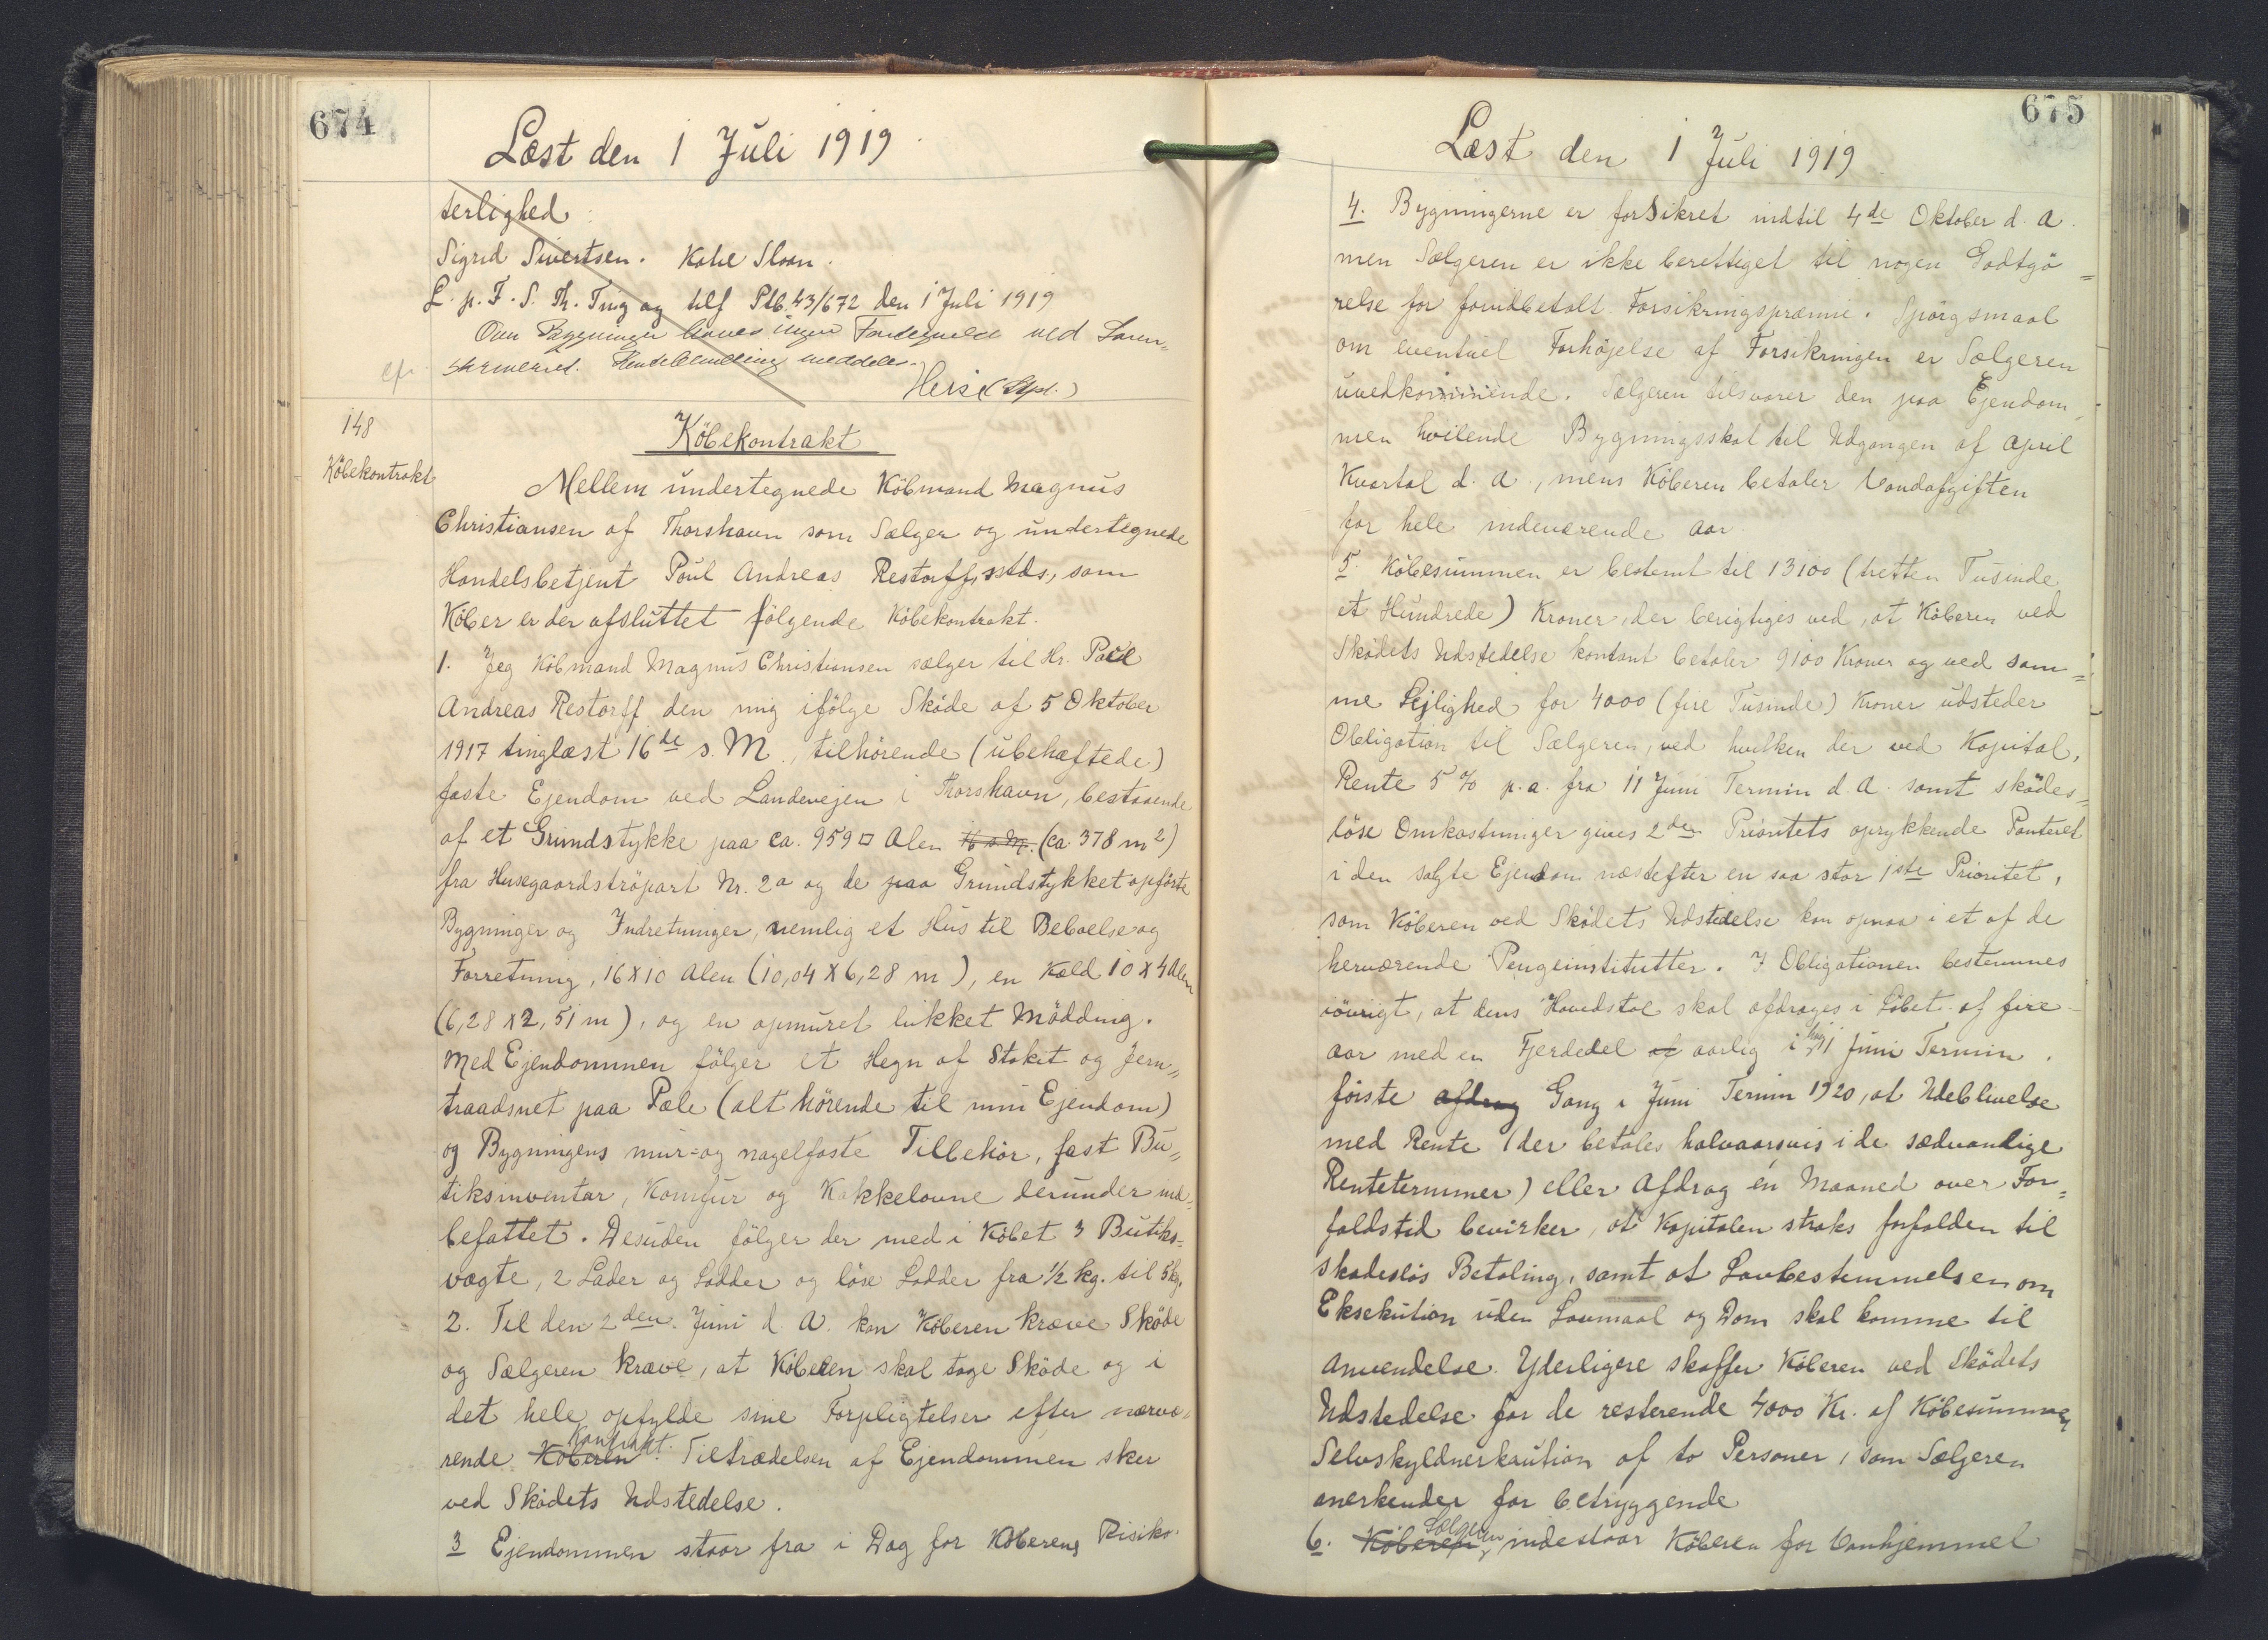 674
Læst den 1 Juli 1919
terlighed:
Sigrid Sivertsen. Kohl Sloan.
L. p. F. S. Th. Ting og tilf Ptb. 43/672 den 1 Juli 1919
Om Bygninger haves ingen Fortegnelse ved Soren-
skriveriet. Hentebemdling meddeles.
Heise (Stpl.)
148
Købekontrakt
Købekontrakt
Mellem undertegnede Købmand Magnus
Christiansen af Thorshavn som Sælger og undertegnede
Handelsbetjent Poul Andreas Restorff, sstds., som
Køber er der afsluttet følgende Købekontrakt.
1. Jeg Købmand Magnus Christiansen sælger til Hr. Poul
Andreas Restorff den mig ifølge Skøde af 5 Oktober
1917 tinglæst 16de s. M., tilhørende (ubehæftede)
faste Ejendom ved Landevejen i Thorshavn, bestaaende
af et Grundstykke paa ca. 959 □ Alen 16 s. M. (ca. 378 m2)
fra Husegaardströpart Nr. 2a og de paa Grundstykket opførte
Bygninger og Indretninger, nemlig et Hus til Beboelse og
Forretning, 16 x 10 Alen (10,04 x 6,28 m), en Kæld 10 x 4 Alen
(6,28 x 2,51 m), og en opmuret lukket Mödding.
Med Ejendommen følger et Hegn af Stakit og Jern-
traadsnet paa Pæle (alt hörende til min Ejendom)
og Bygningens mur- og nagelfaste Tilbehør, fast Bu-
tiksinventar, Komfur og Kakkelovne derunder ind-
befattet. Desuden følger der med i Købet 3 Butiks-
vægte, 2 Lader og Lodder og løse Lodder fra 1/2 kg. til 5 kg.
2. Til den 2den Juni d. A. kan Køberen kræve Skøde
og Sælgeren kræve, at Køberen skal tage Skøde og i
det hele opfylde sine Forpligtelser efter nærvæ-
rende Køberen Kontrakt. Tiltrædelsen af Ejendommen sker
ved Skødets Udstedelse.
3 Ejendommen staar fra i Dag for Køberens Risiko.
675
Læst den 1 Juli 1919
4. Bygningerne er forsikret indtil 4de Oktober d. A.
men Sælgeren er ikke berettiget til nogen Godtgö-
relse for forudbetalt Forsikringspræmie. Spörgsmaal
om eventuel Forhöjelse af Forsikringen er Sælgeren
uvedkommende. Sælgeren tilsvarer den paa Ejendom-
men hvilende Bygningsskat til Udgangen af April
Kvartal d. A., mens Køberen betaler Vandafgiften
for hele indeværende Aar.
5. Købesummen er bestemt til 13100 (tretten Tusinde
et Hundrede) Kroner, der berigtiges ved, at Køberen ved
Skødets Udstedelse kontant betaler 9100 Kroner og ved sam-
me Lejlighed for 4000 (fire Tusinde) Kroner udsteder
Obligation til Sælgeren, ved hvilken der ved Kapital,
Rente 5 % p. a. fra 11 Juni Termin d. A. samt skødes-
löse Omkostninger gives 2den Prioritets oprykkende Panteret
i den solgte Ejendom næstefter en saa stor 1ste Prioritet,
som Køberen ved Skødets Udstedelse kan opnaa i et af de
herværende Pengeinstitutter. I Obligationen bestemmes
iövrigt, at dens Hovedstol skal afdrages i Löbet af fire
Aar med en Fjerdedel af aarlig i 11 Juni Termin,
første afdrag Gang i Juni Termin 1920, at Udeblivelse
med Rente (der betales halvaarsvis i de sædvanlige
Renteterminer) eller Afdrag én Maaned over For-
faldstid bevirker, at Kapitalen straks forfalden til
skadeslös Betaling, samt at Lovbestemmelsen om
Eksekution uden Lovmaal og Dom skal komme til
Anvendelse. Yderligere skaffer Køberen ved Skødets
Udstedelse for de resterende 4000 Kr. af Købesummen
Selvskyldnerkaution af to Personer, som Sælgeren
anerkender for betryggende
6. Køberen Sælgeren indestaar Køberen for Vanhjemmel